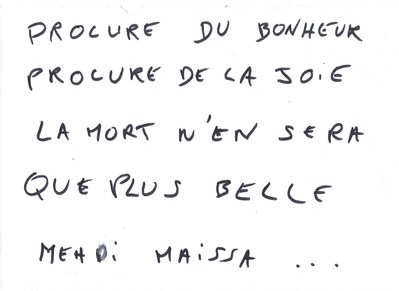 PROCURE DU BONHEUR
PROCURE DE LA JOiE
LA MORT N'EN SERA
QUE PLUS BELLE
MEHDi MAiSSA ...